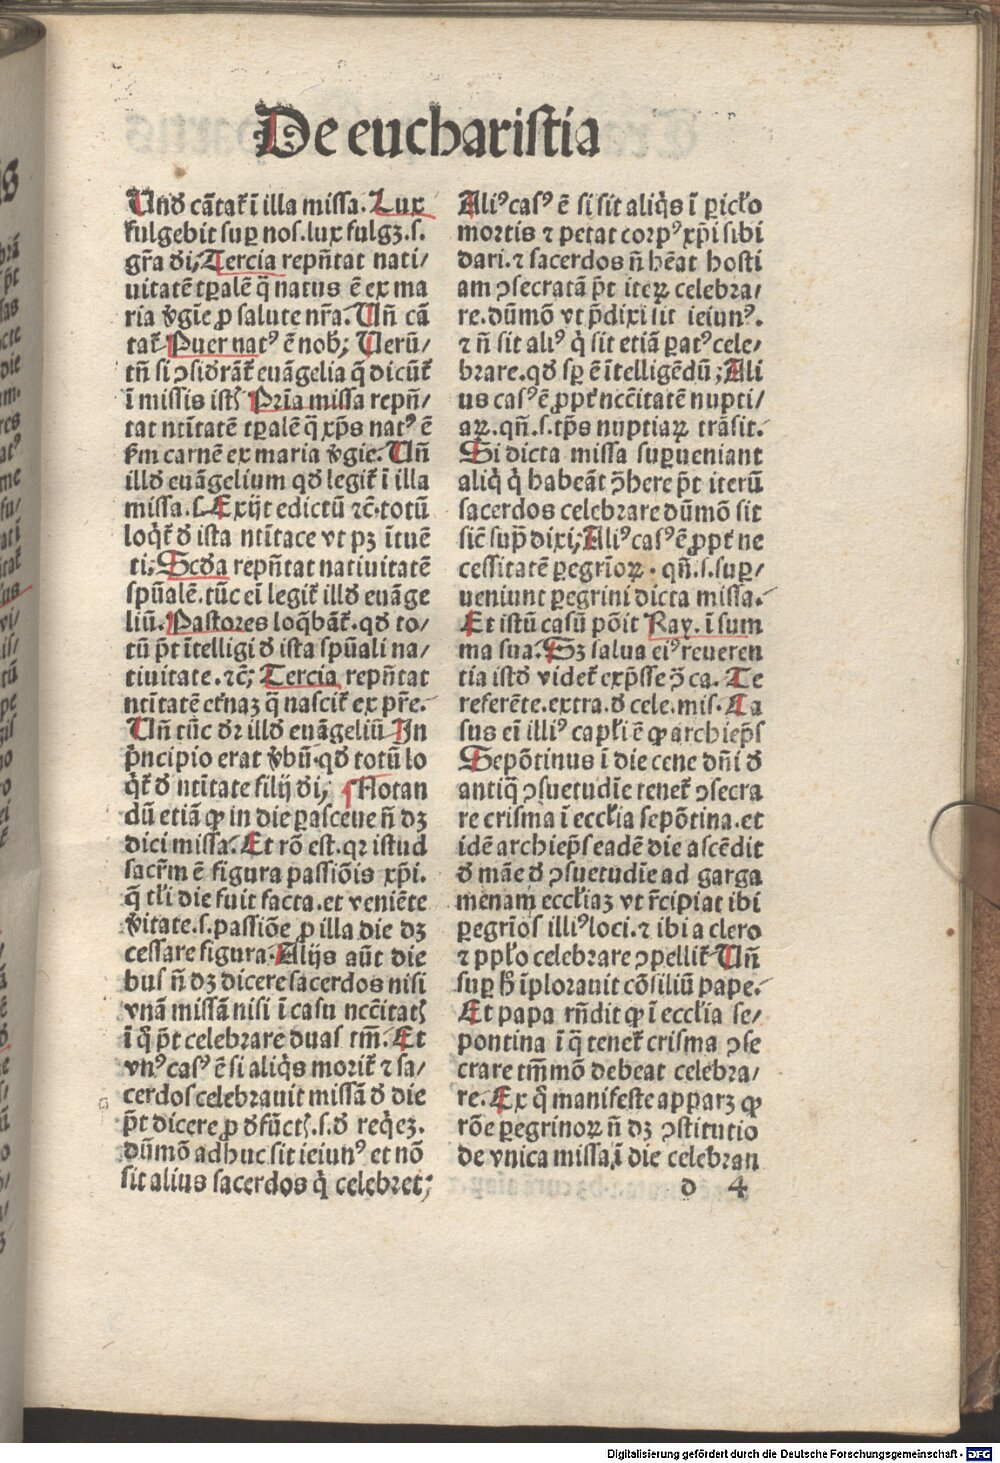 De eucharistia
Unđ cãtat᷑ ĩ illa missa. Lux
fulgebit suꝑ nos. lux fulgꝫ .s.
gr̃a đi; Tercia repñtat nati/
uitatẽ tꝑalẽ q̃ natus ẽ ex ma
ria v̓gĩe ꝓ salute nr̃a. Uñ cã
tat᷑ Puer natꝰ ẽ nob̃; Uerũ/
tñ si ꝯsiđrãt᷑ euãgelia q̃ dicũt᷑
ĩ missis istꝭ Pr̃ia missa repñ/
tat ntĩtatẽ tꝑalẽ q̃ xp̃s natꝰ ẽ
ẜm carnẽ ex maria v̓gie. Uñ
illđ euãgelium qđ legit᷑ ĩ illa
missa .ſ. Exijt edictũ ⁊c̃. totũ
loqt᷑ đ ista ntĩtace vt pꝫ ĩtuẽ
ti; Scđa repñtat natiuitatẽ
spũalẽ. tũc eĩ legit᷑ illđ euãge
liũ. Pastores loq̃bãt᷑. qđ to/
tũ p̃t ĩtelligi đ ista spũali na/
tiuitate. ⁊c̃; Tercia repñtat
ntĩtatẽ et᷑naꝫ q̃ nascit᷑ ex pr̃e.
Uñ tũc dr̃ illđ euãgeliũ In
p̃ncipio erat v̓bũ. qđ totũ lo
q̃t᷑ đ ntĩtate filij đi; Notan
dũ etiã ꝙ in die ꝑasceue ñ dꝫ
dici missa. Et rõ est. qꝛ istud
sacr̃m ẽ figura passiõis xp̃i.
q̃ tłi die fuit facta. et veniẽte
v̓itate .s. passiõe ꝓ illa die dꝫ
cessare figura. Alijs aũt die
bus ñ dꝫ dicere sacerdos nisi
vnã missã nisi ĩ casu nccĩtatꝭ
ĩ q̊ p̃t celebrare duas tm̃. Et
vnꝰ casꝰ ẽ si aliq̓s morit᷑ ⁊ sa/
cerdos celebrauit missã đ die
p̃t dicere ꝓ đfũctꝭ .s. đ req̓eꝫ.
dũmõ adhuc sit ieiunꝰ et nõ
sit alius sacerdos q̓ celebret;
Aliꝰ casꝰ ẽ si sit aliq̓s ĩ ꝑicło
mortis ⁊ petat corpꝰ xp̃i sibi
dari. ⁊ sacerdos ñ hẽat hosti
am ꝯsecratã p̃t iteꝝ celebra/
re. dũmõ vt p̃dixi sit ieiunꝰ.
⁊ ñ sit aliꝰ q̓ sit etiã ꝑatꝰ cele/
brare. qđ sꝑ ẽ ĩtelligẽdũ; Ali
us casꝰ ẽ ꝓpt᷑ nccĩtatẽ nupti/
aꝝ. qñ .s. tp̃s nuptiaꝝ trãsit.
Si dicta missa suꝑueniant
aliq̓ q̓ habeãt ꝯ̃here p̃t iterũ
sacerdos celebrare dũmõ sit
siẽ sup̃ dixi; Aliꝰ casꝰ ẽ ꝓpt᷑ ne
cessitatẽ ꝑegrĩoꝝ . qñ .s. suꝑ/
ueniunt ꝑegrini dicta missa.
Et istũ casũ põit Ray. ĩ sum
ma sua. Sꝫ salua eiꝰ reueren
tia istđ videt᷑ exp̃sse ꝯ̃ ca. Te
referẽte. extra. đ cele. mis. Ca
sus eĩ illiꝰ capłi ẽ ꝙ archiep̃s
Sepõtinus ĩ die cene dñi đ
antiq̃ ꝯsuetudĩe tenet᷑ ꝯsecra
re crisma ĩ eccłia sepõtina. et
idẽ archiep̃s eadẽ die ascẽdit
đ mãe đ ꝯsuetudĩe ad garga
menam eccłiaꝫ vt r̃cipiat ibi
ꝑegrĩos illiꝰ loci. ⁊ ibi a clero
⁊ ppło celebrare ꝯpellit᷑ Uñ
suꝑ h̃ ĩplorauit cõsiliũ pape.
Et papa rñdit ꝙ ĩ eccłia se/
pontina ĩ q̃ tenet᷑ crisma ꝯse
crare tm̃mõ debeat celebra/
re. Ex q̊ manifeste apparꝫ ꝙ
rõe ꝑegrinoꝝ ñ dꝫ ꝯstitutio
de vnica missa, ĩ die celebran
d 4
Digitalisierung gefördert durch die Deutsche Forschungsgemeinschaft - DFG